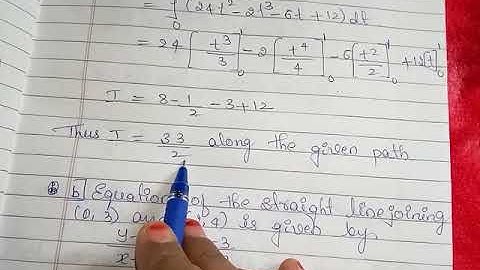 = ∫₀ (24t² - 2t³ - 6t + 12) dt
= 24 [t³/3]₀¹ - 2 [t⁴/4]₀¹ - 6 [t²/2]₀¹ + 12 [t]₀¹
I = 8 - 1/2 - 3 + 12
Thus I = 33/2 along the given path
b] Equation of the straight line joining
(0, 3) and 4) is given by
y 3
x